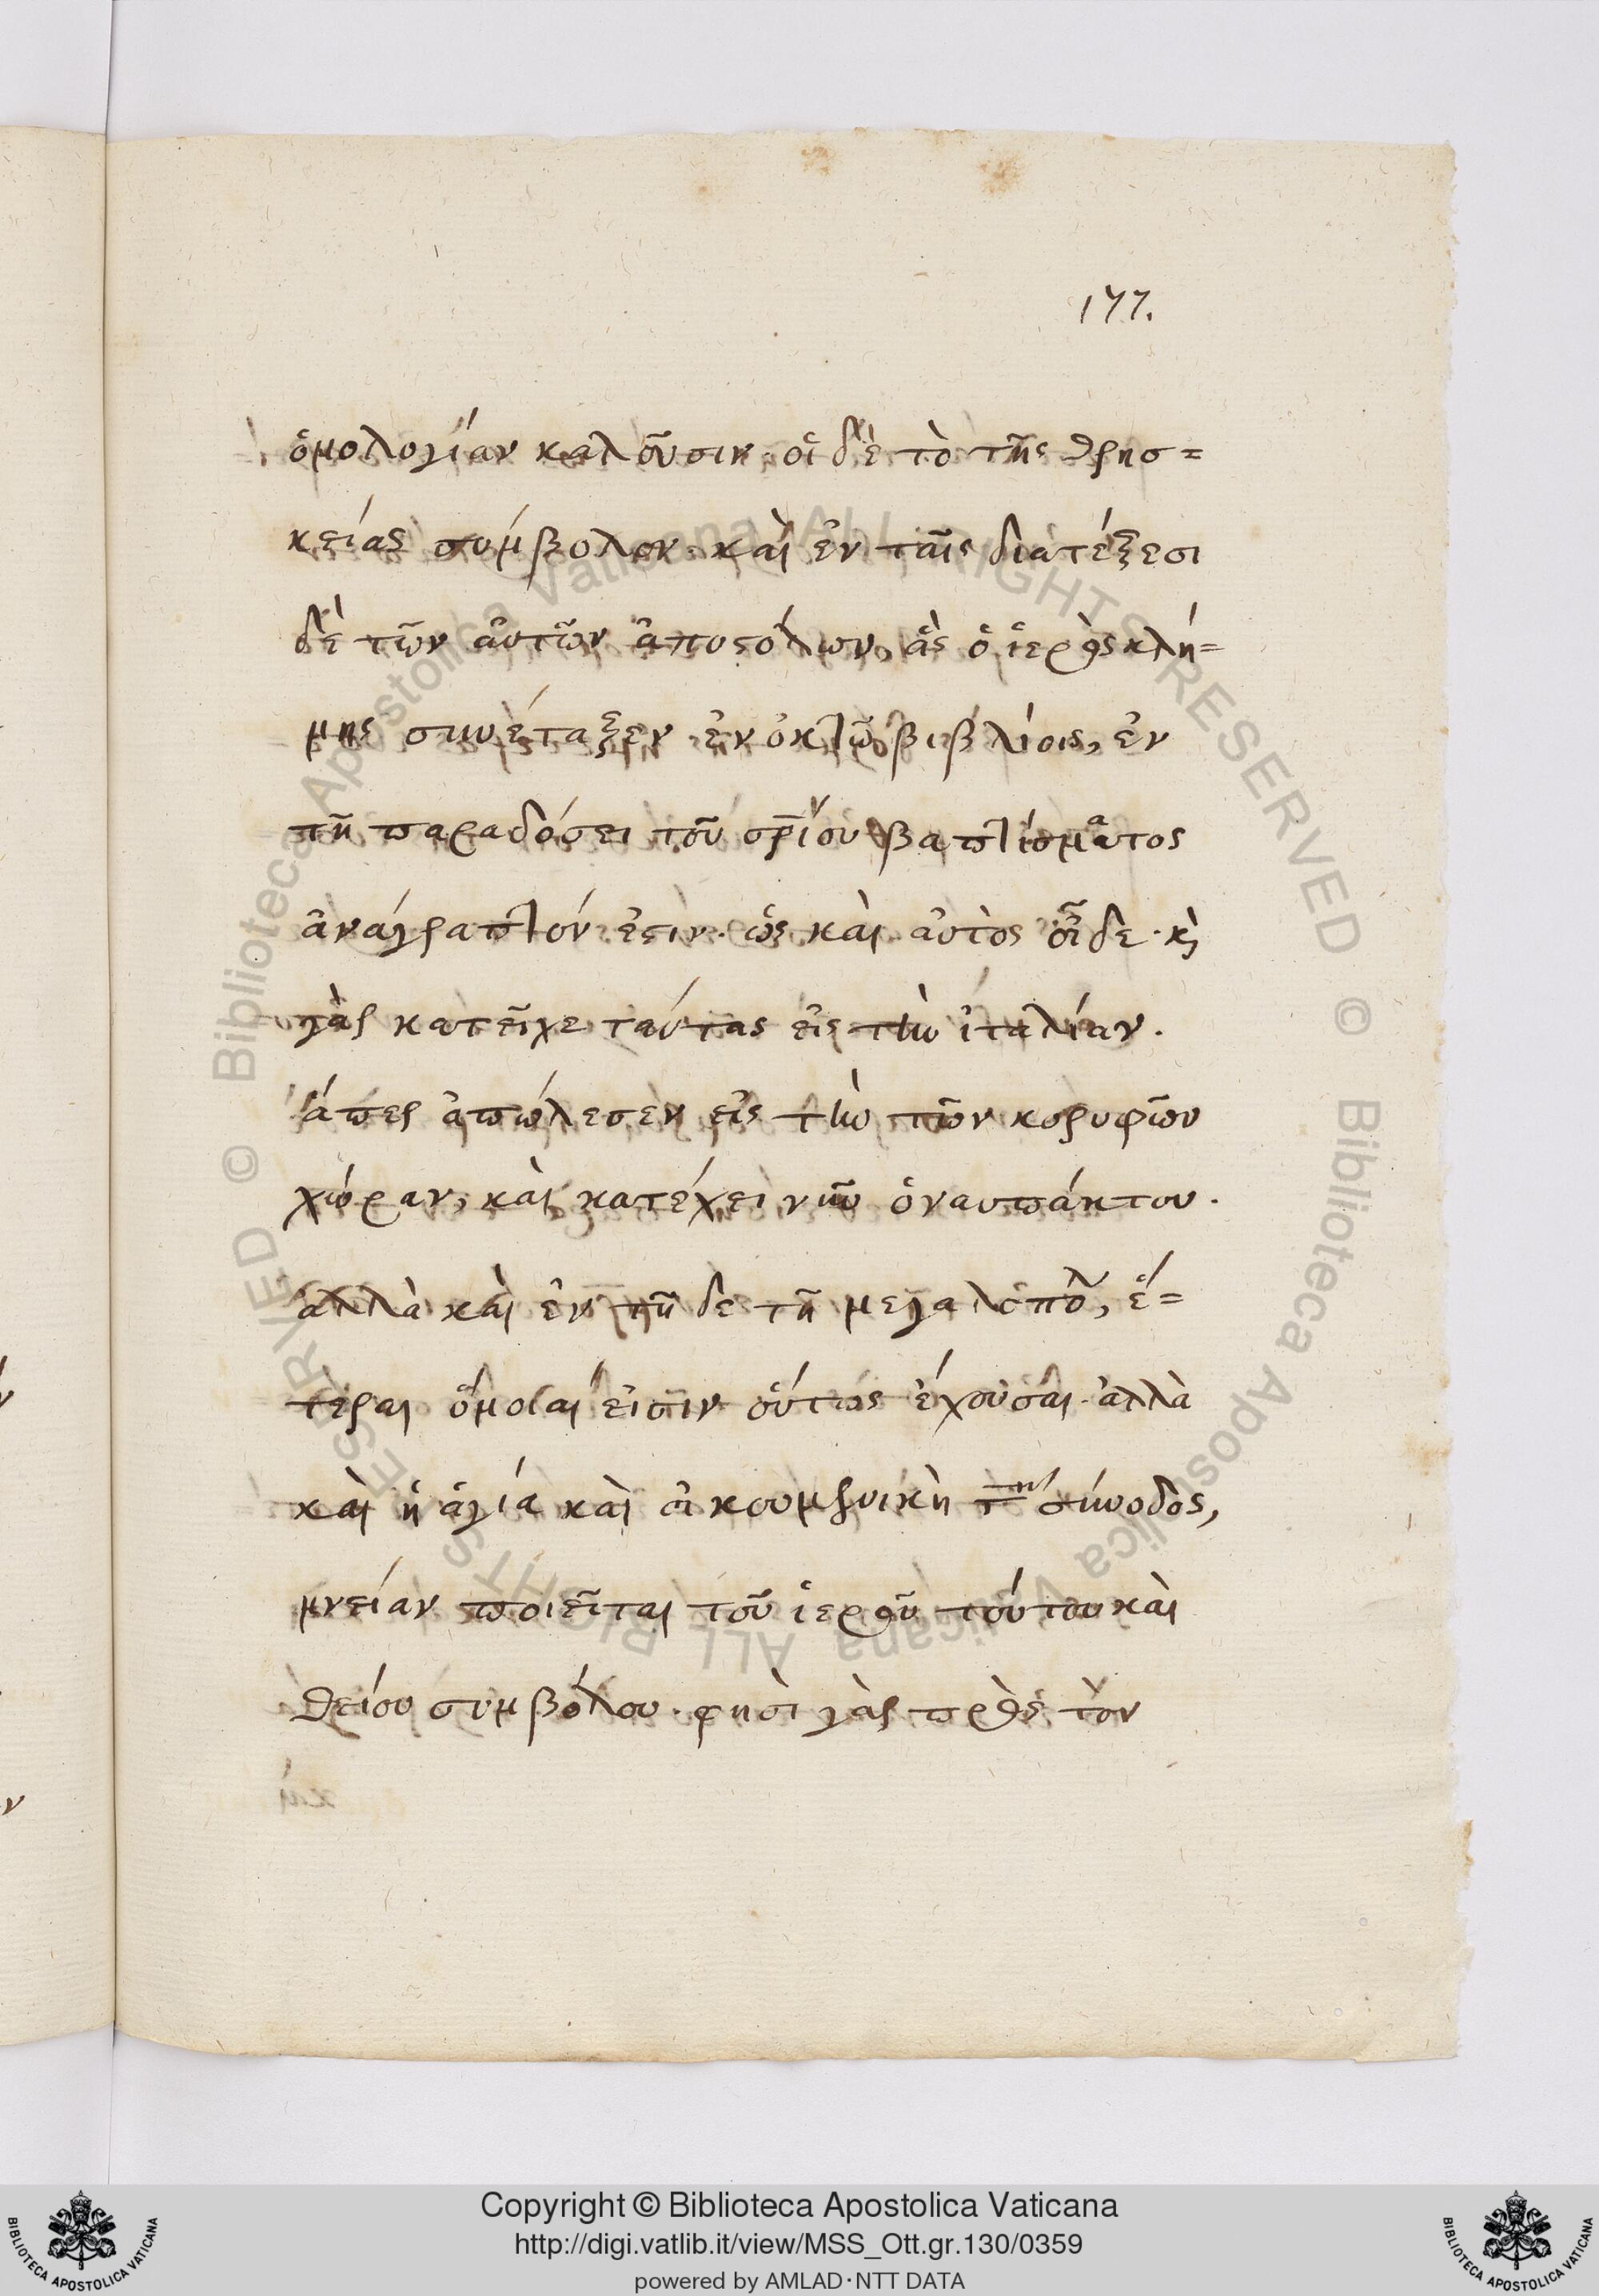 177.
ὁμολογίαν καλοῦσιν· οἱ δὲ τὸ τῆς θρησ=
κείας σύμβολον· καὶ ἐν ταῖς διατάξεσι
δὲ τῶν αὐτῶν ἀποστόλων, ἃς ὁ ἱερὸς κλή=
μης συνέταξεν ἐν ὀκτὼ βιβλίοις, ἐν
τῇ παραδόσει τοῦ βαπτίσματος
ἀνάγραπτόν ἐστιν· ὡς καὶ αὐτὸς οἶδε· κ̀
γὰρ κατεῖχε ταύτας εἰς τὴν ἰταλίαν.
ἅπερ ἀπώλεσεν εἰς τὴν τῶν κορυφῶν
χώραν, καὶ κατέχει νῦν ὁ ναυπάκτου.
ἀλλὰ καὶ ἐν τῇ δε τῇ μεγαλοπό^λ, ἕ=
τεραι ὅμοιαί εἰσιν οὕτως ἔχουσαι· ἀλλὰ
καὶ ἡ ἁγία καὶ οἰκουμενικὴ σύνοδος,
μνείαν ποιεῖται τοῦ ἱεροῦ τούτου καὶ
θείου συμβόλου· φησὶ γὰρ πρὸς τὸν
Copyright © Biblioteca Apostolica Vaticana
http://digi.vatlib.it/view/MSS_Ott.gr.130/0359
powered by AMLAD·NTT DATA
BIBLIOTECA APOSTOLICA VATICANA
BIBLIOTECA APOSTOLICA VATICANA
© Biblioteca Apostolica Vaticana ALL RIGHTS RESERVED © Biblioteca Apostolica Vaticana ALL RIGHTS RESERVED